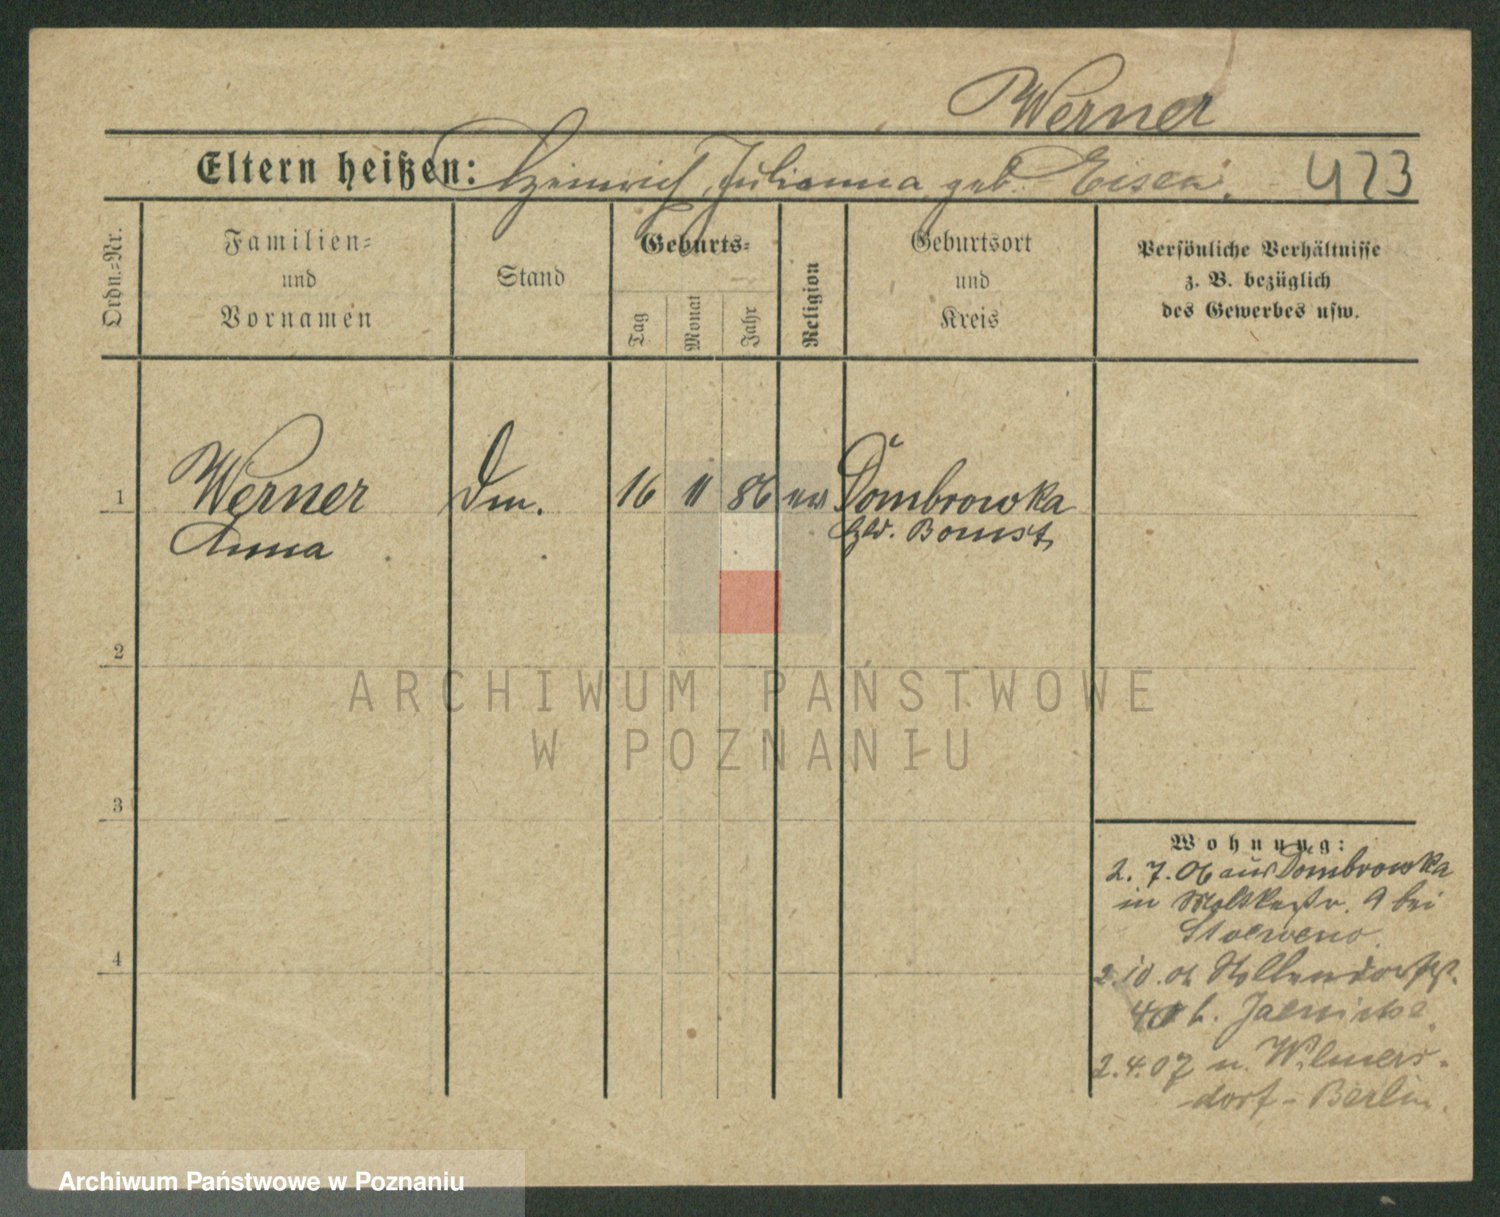 Werner
Eltern heißen: Heinrich, Julianna geb. 423
Ordn.=Nr.
Familien=
und
Vornamen
Stand
Geburts=
Tag
Monat
Jahr
Religion
Geburtsort
und
Kreis
Persönliche Verhältnisse
z. B. bezüglich
des Gewerbes usw.
1 Werner Dm. 16 11 86 ev Dombrowka
Anna Bomst
2
ARCHIWUM PAŃSTWOWE
W POZNANIU
3
Wohnung:
2. 7. 06 aus Dombrowka
in Moltkestr. 9 bei
4
2. 10. 06
40 b.
2. 4. 07 n. Wilmers-
dorf - Berlin.
Archiwum Państwowe w Poznaniu